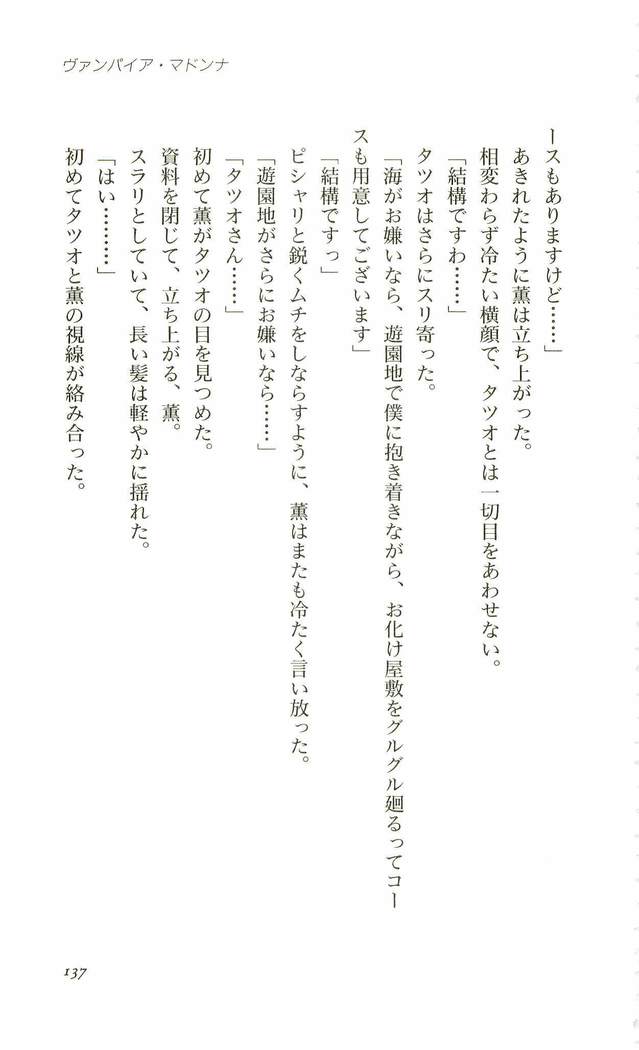 ヴァンパイア・マドンナ
ースもありますけど……」
あきれたように薫は立ち上がった。
相変わらず冷たい横顔で、タツオとは一切目をあわせない。
「結構ですわ……」
タツオはさらにスリ寄った。
「海がお嫌いなら、遊園地で僕に抱き着きながら、お化け屋敷をグルグル廻るってコー
スも用意してございます」
「結構ですっ」
ピシャリと鋭くムチをしならすように、薫はまたも冷たく言い放った。
「遊園地がさらにお嫌いなら……」
「タツオさん……」
初めて薫がタツオの目を見つめた。
資料を閉じて、立ち上がる、薫。
スラリとしていて、長い髪は軽やかに揺れた。
「はい………」
初めてタツオと薫の視線が絡み合った。
137